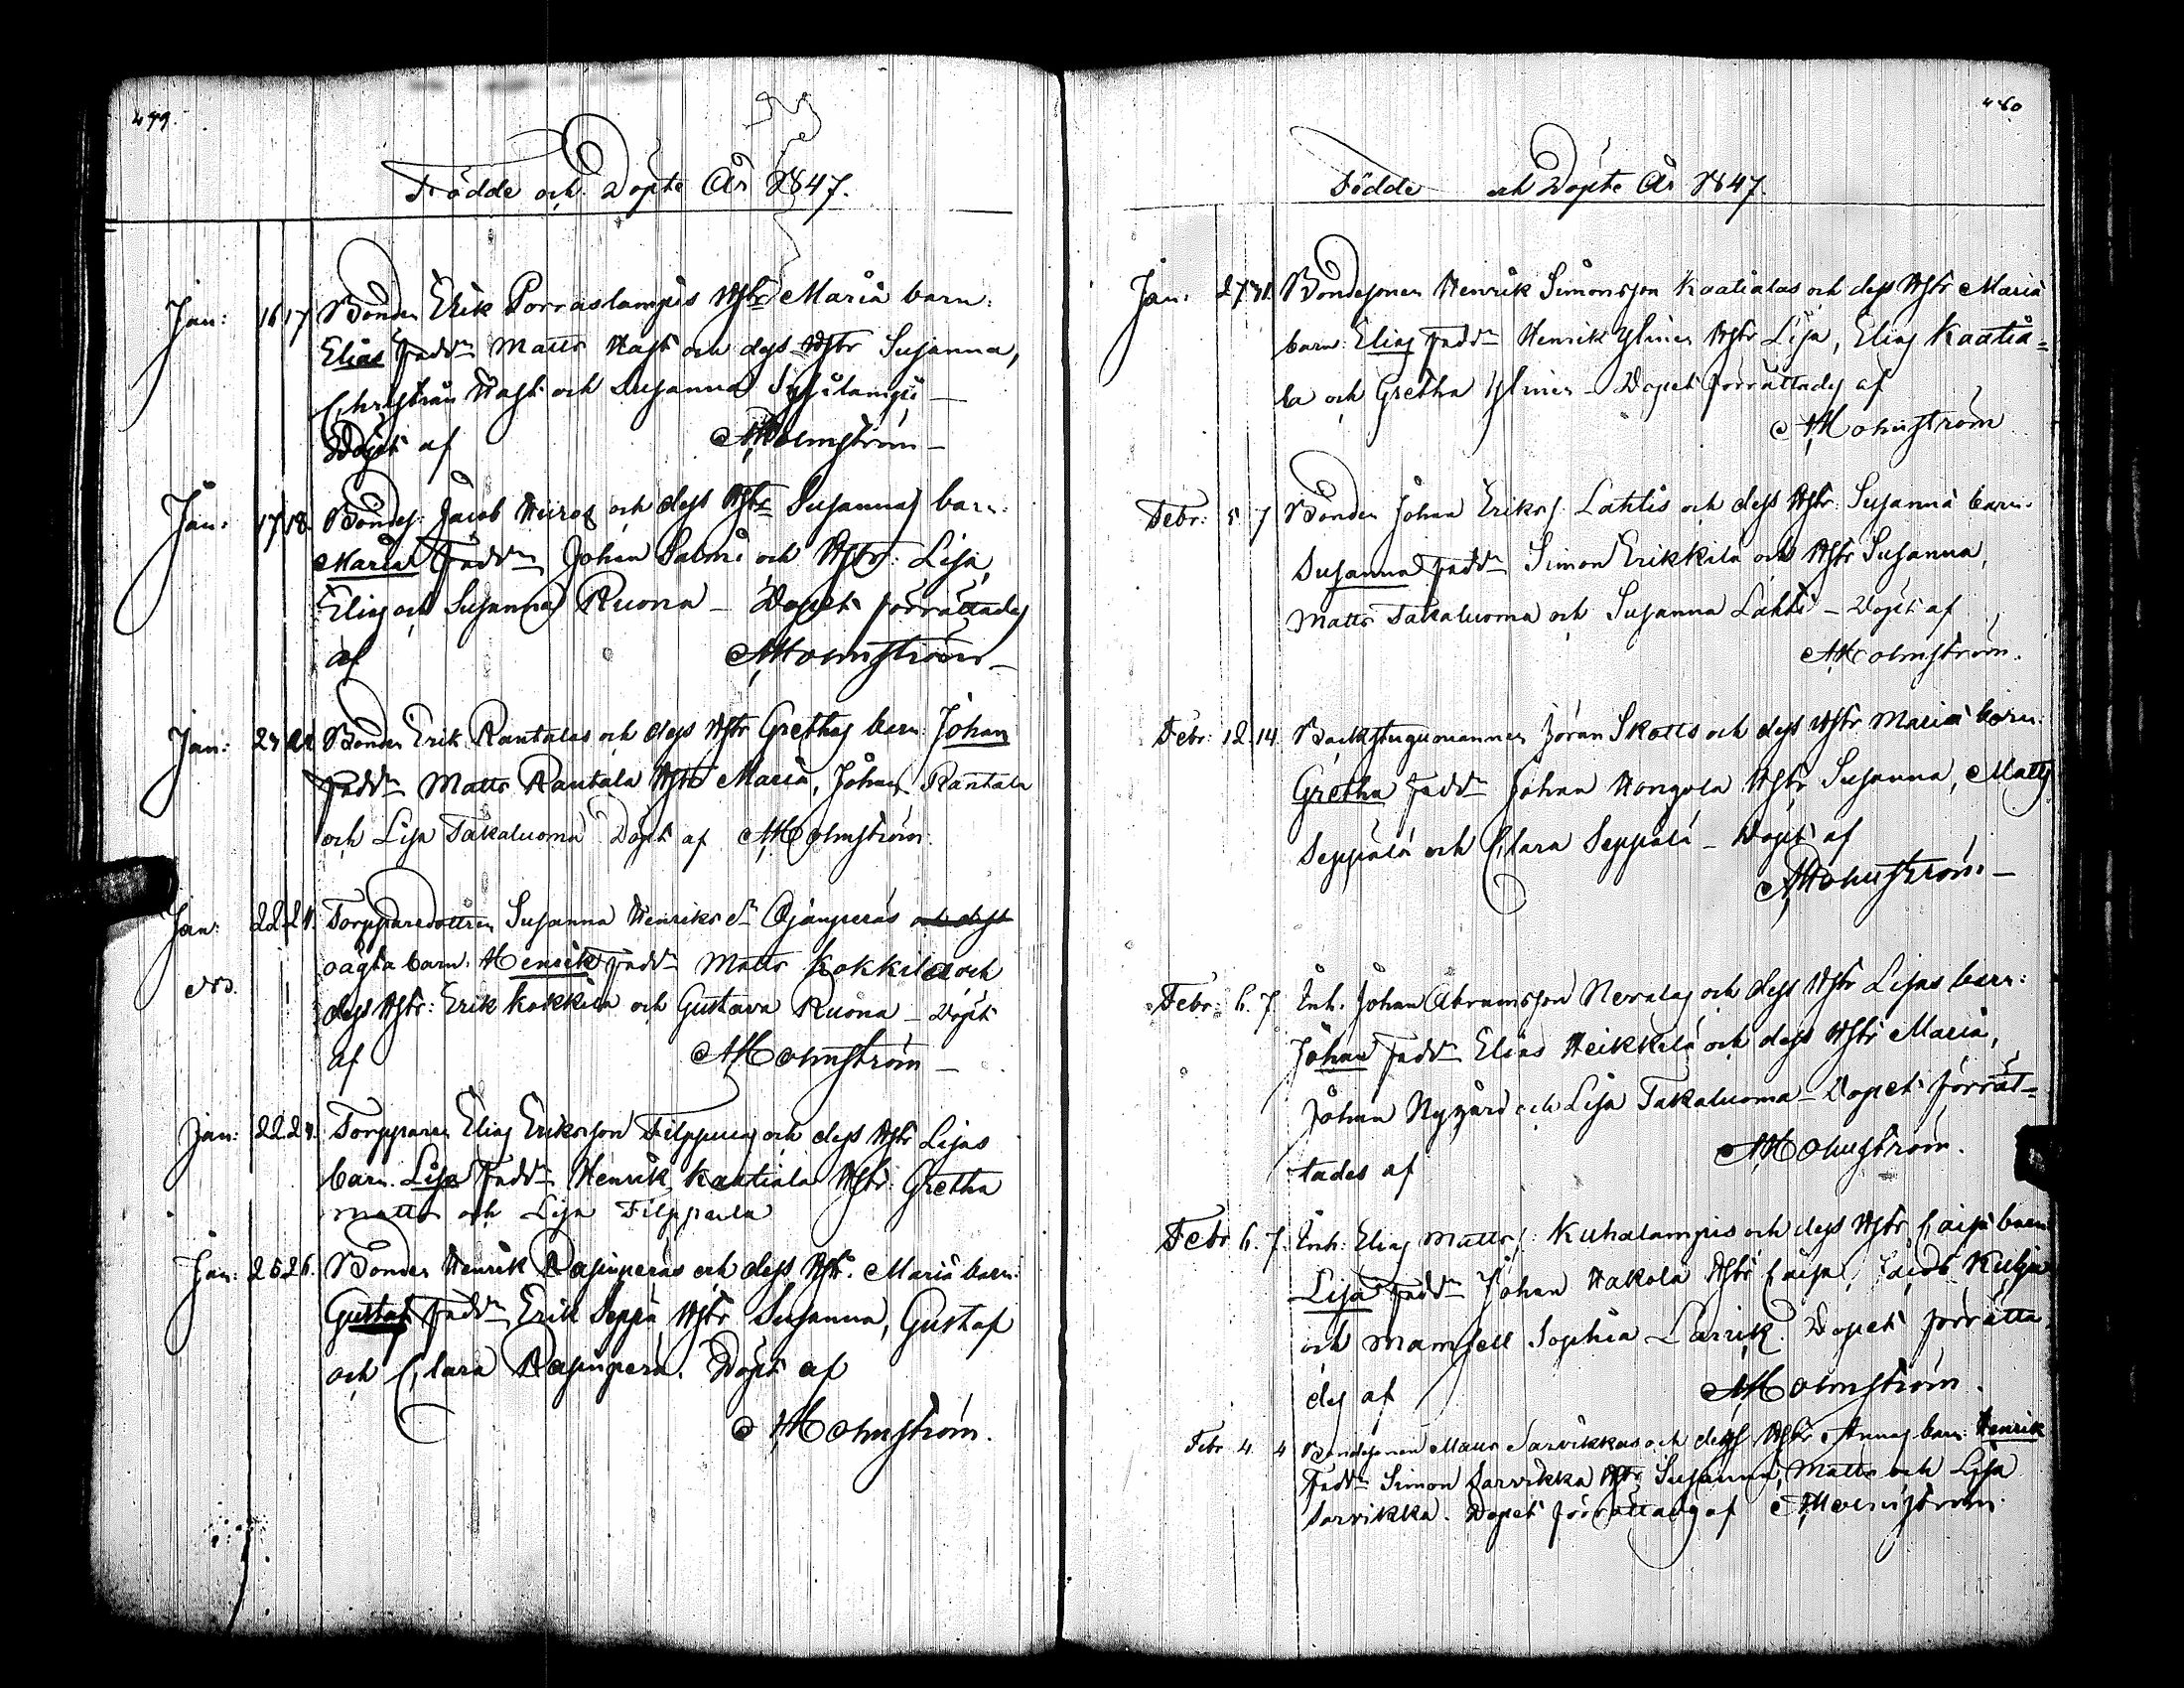 479.
Födde och Döpte År 1847.
Jan: 16 17 Bonden Erik Porraslampis Hstr Maria barn:
Elias Faddr Matts Hast och dess Hstr Susanna,
Christian Hast och Susanna
Döpt af AHolmström
Jan: 17 18. Bondes: Jacob och dess Hstr Susannas barn:
Maria Faddr Johan Salmi och Hstr: Lisa,
Elias och Susanna Ruona – Dopet förrättades
af AHolmström
Jan: Bonden Erik Rantalas och dess Hstr Grethas barn: Johan
Faddr Matts Rantala Hstr Maria, Johan Rantala
och Lisa Takaluoma Döpt af AHolmström.
Jan: 22 24. Torpparedottren Susanna Henriks dr och dess
oägta barn: Henrik Faddr Matts Kokkila och
dess Hstr: Erik Kokkila och Gustava Ruona – Döpt
af AHolmström
Jan: 22 24. Torpparen Elias Eriksson Filppulas och dess Hstr Lisas
barn. Lisa Faddr Henrik Kaatiala Hstr: Gretha
Matts och Lisa Filppula
Jan: 25 26. Bonden Henrik Rasinperäs och dess Hstr. Maria barn:
Gustaf Faddr Erik Seppä Hstr Susanna, Gustaf
och Clara Rasinperä. Döpt af
AHolmström.
480
Födde och Döpte År 1847.
Jan: 27 31. Bondesonen Henrik Simonsson Kaatialas och dess Hstr Maria
barn: Elias Faddr Henrik Ylinen Hstr Lisa, Elias Kaatia=
la och Gretha Ylinen – Dopet förrättades af
AHolmström
Febr: 5 7 Bonden Johan Eriks s. Lahtis och dess Hstr: Susanna barn:
Susanna Faddr Simon Erikkila och Hstr Susanna,
Matts Takaluoma och Susanna Lahti – Döpt af
AHolmström.
Febr: 12. 14. Backstugumannen Jöran Skotts och dess Hstr Maria barn:
Gretha Faddr Johan Hongola Hstr Susanna, Matts
Seppälä och Clara Seppälä – Döpt af
AHolmström –
Febr: 6. 7. Inh. Johan Abramsson Nevalas och dess Hstr Lisas barn:
Johan Faddr Elias Heikkilä och dess Hstr Maria,
Johan Nygård och Lisa Takaluoma – Dopet förrät=
tades af AHolmström.
Febr 6. 7. Inh: Elias Matts s: Kuhalampis och dess Hstr Caisa barn
Lisa Faddr Johan Hakola Hstr Caisa, Jacob
och Mamsell Sophia Dopet förrätta
des af AHolmström.
Febr 4. 4 Bondesonen Matts Sarvikkas och dess Hstr Annas barn: Henrik
Faddr Simon Sarvikka Hstr Susanna, Matts och Lisa
Sarvikka. Dopet förrättades af AHolmström.